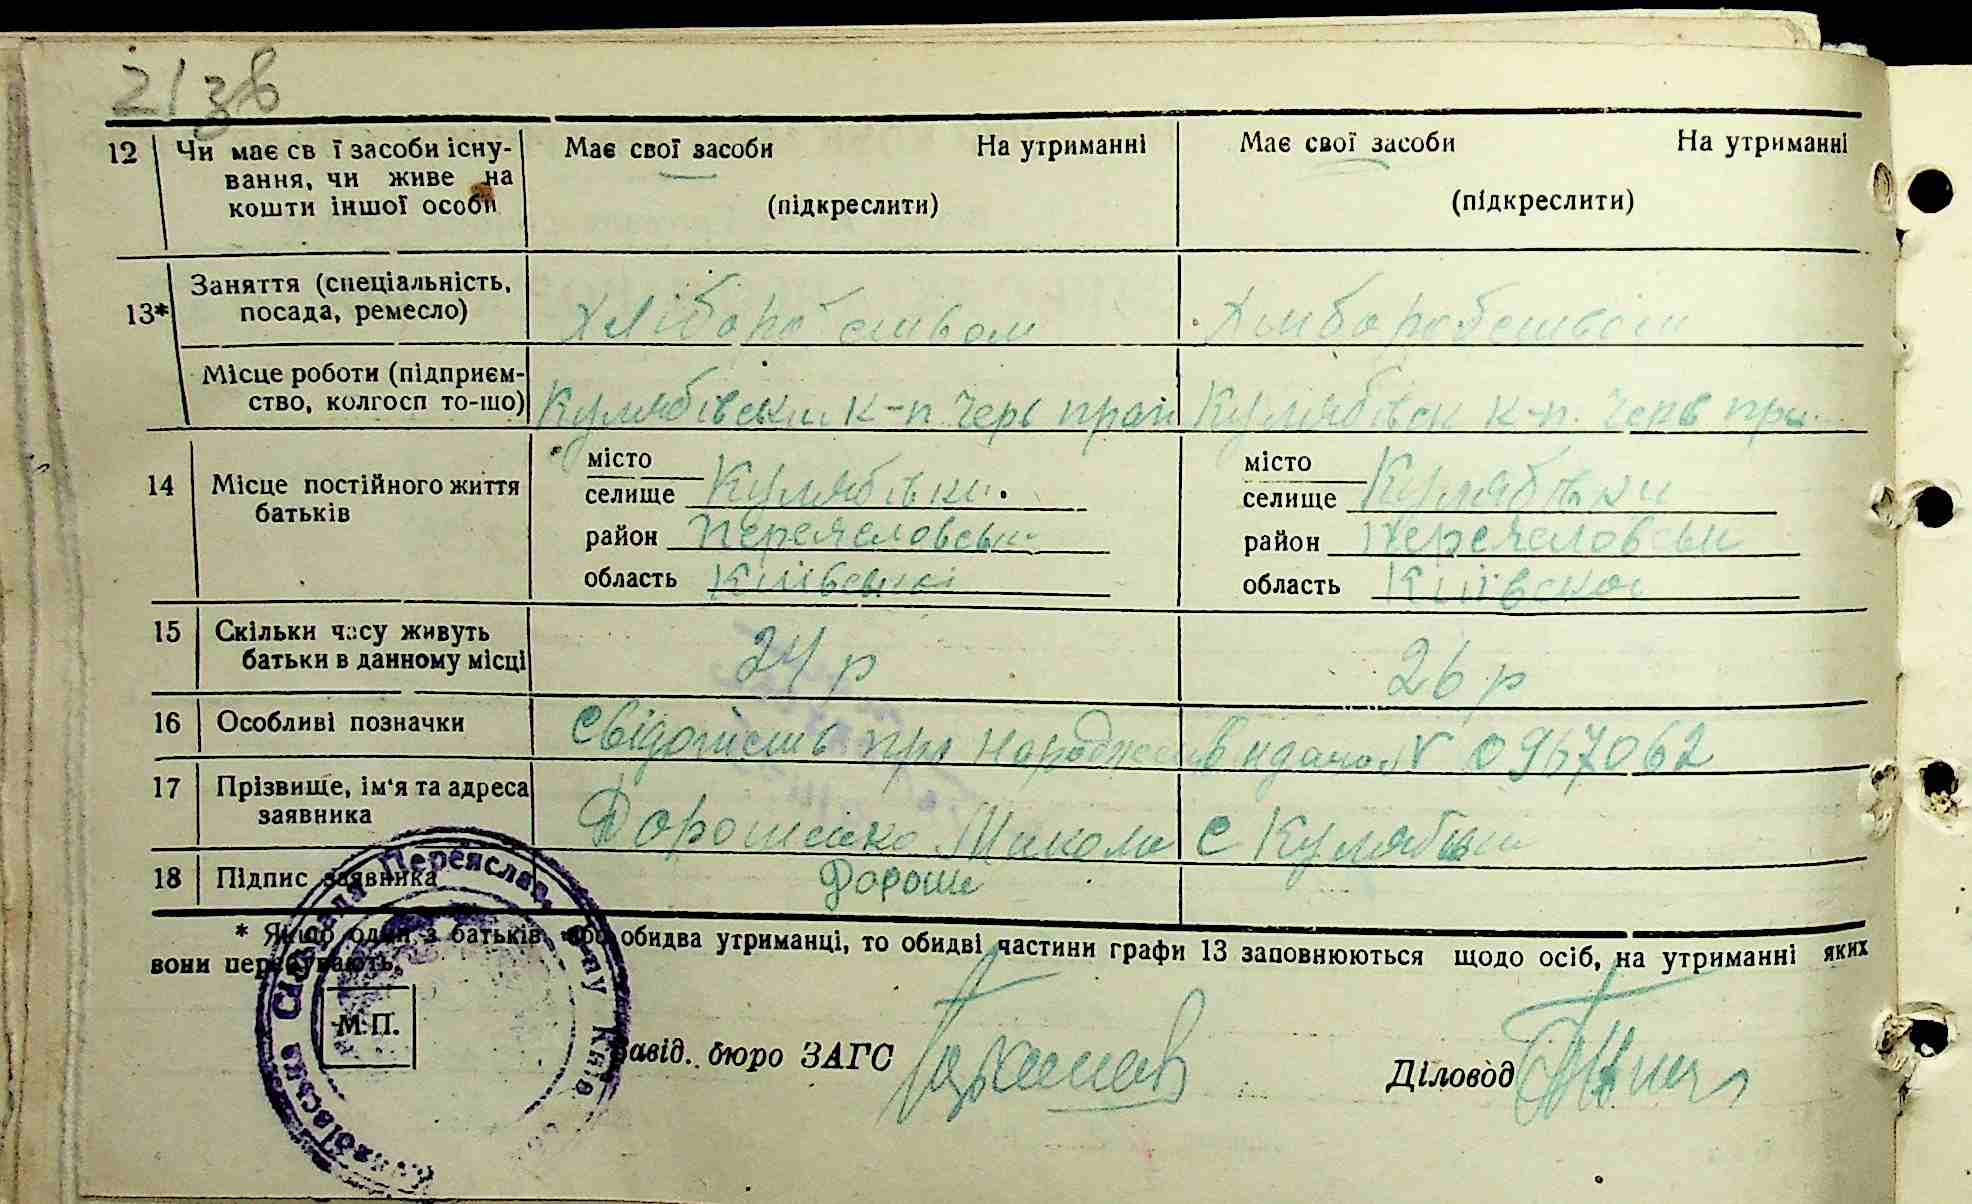 2138
12 Чи має св ї засоби існу- Має свої засоби На утриманні Має свої засоби На утриманні
вання, чи живе на
кошти іншої особи (підкреслити) (підкреслити)
13* Заняття (спеціальність,
посада, ремесло) Хліборобством Хліборобством
Місце роботи (підприєм-
ство, колгосп то-що) к-п. Черв к-п. Черв
14 Місце постійного життя
батьків
місто місто
селище Кулябівки селище Кулябівки
район Переяславськи район Переяславськи
область Київської область Київскої
15 Скільки часу живуть
батьки в данному місці 24 р 26 р
16 Особливі позначки Свідотство про народжен видано N 0967062
17 Прізвище, ім'я та адреса
заявника Дорошенко Микола с Кулябівки
18 Підпис заявника Дороше
* Якщо один з батьків або обидва утриманці, то обидві частини графи 13 заповнюються щодо осіб, на утриманні яких
вони перебувають.
М.П.
Завід. бюро ЗАГС Діловод
Сільрада Переяслав.